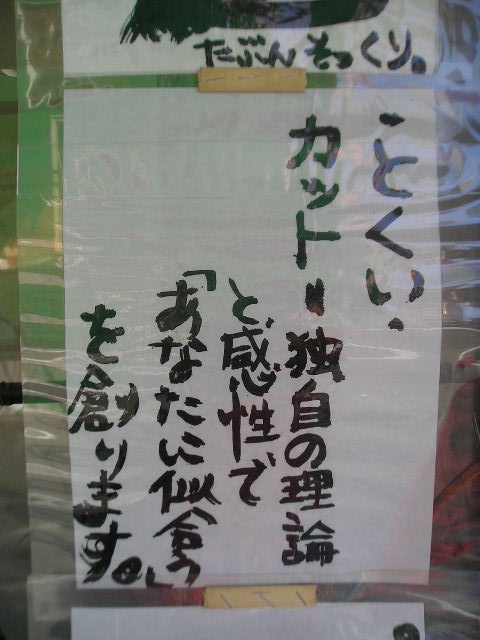 たぶんそっくり。
ことくい.
カットー独自の理論
と感性で
「あなたに似合う」
を創ります。